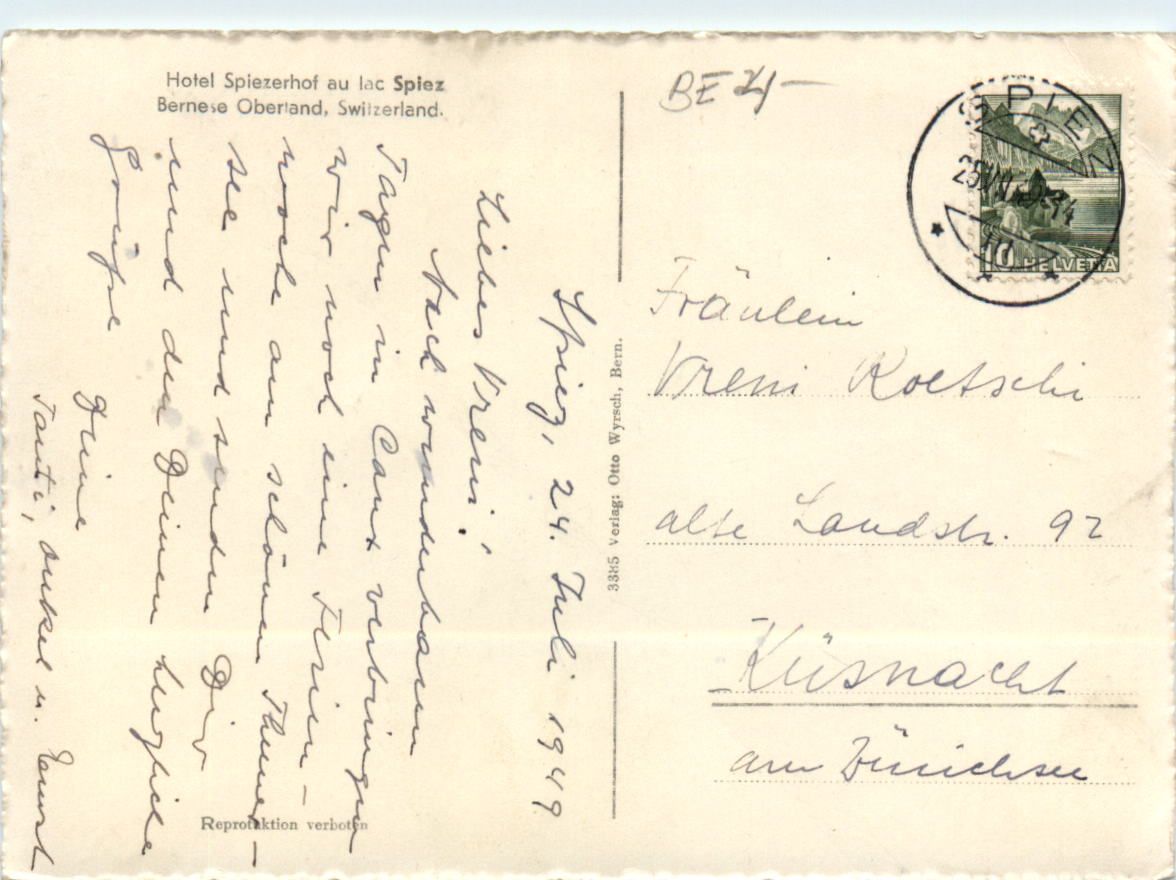 Hotel Spiezerhof au lac Spiez
Bernese Oberland, Switzerland.
Spiez, 24. Juli 1949
Liebes Vreni!
Nach wunderbaren
Tagen in verbringen
wir noch eine Ferien-
woche am schönen Thuner-
see und senden Dir
und den Deinen herzliche
Grüsse
Deine
Tanti, Onkel u.
Reproduktion verboten
3385 Verlag: Otto Wyrsch, Bern.
BE
SPIEZ
10 HELVETIA
Fräulein
Vreni Roetschi
alte Landstr. 92
Küsnacht
am Zürichsee